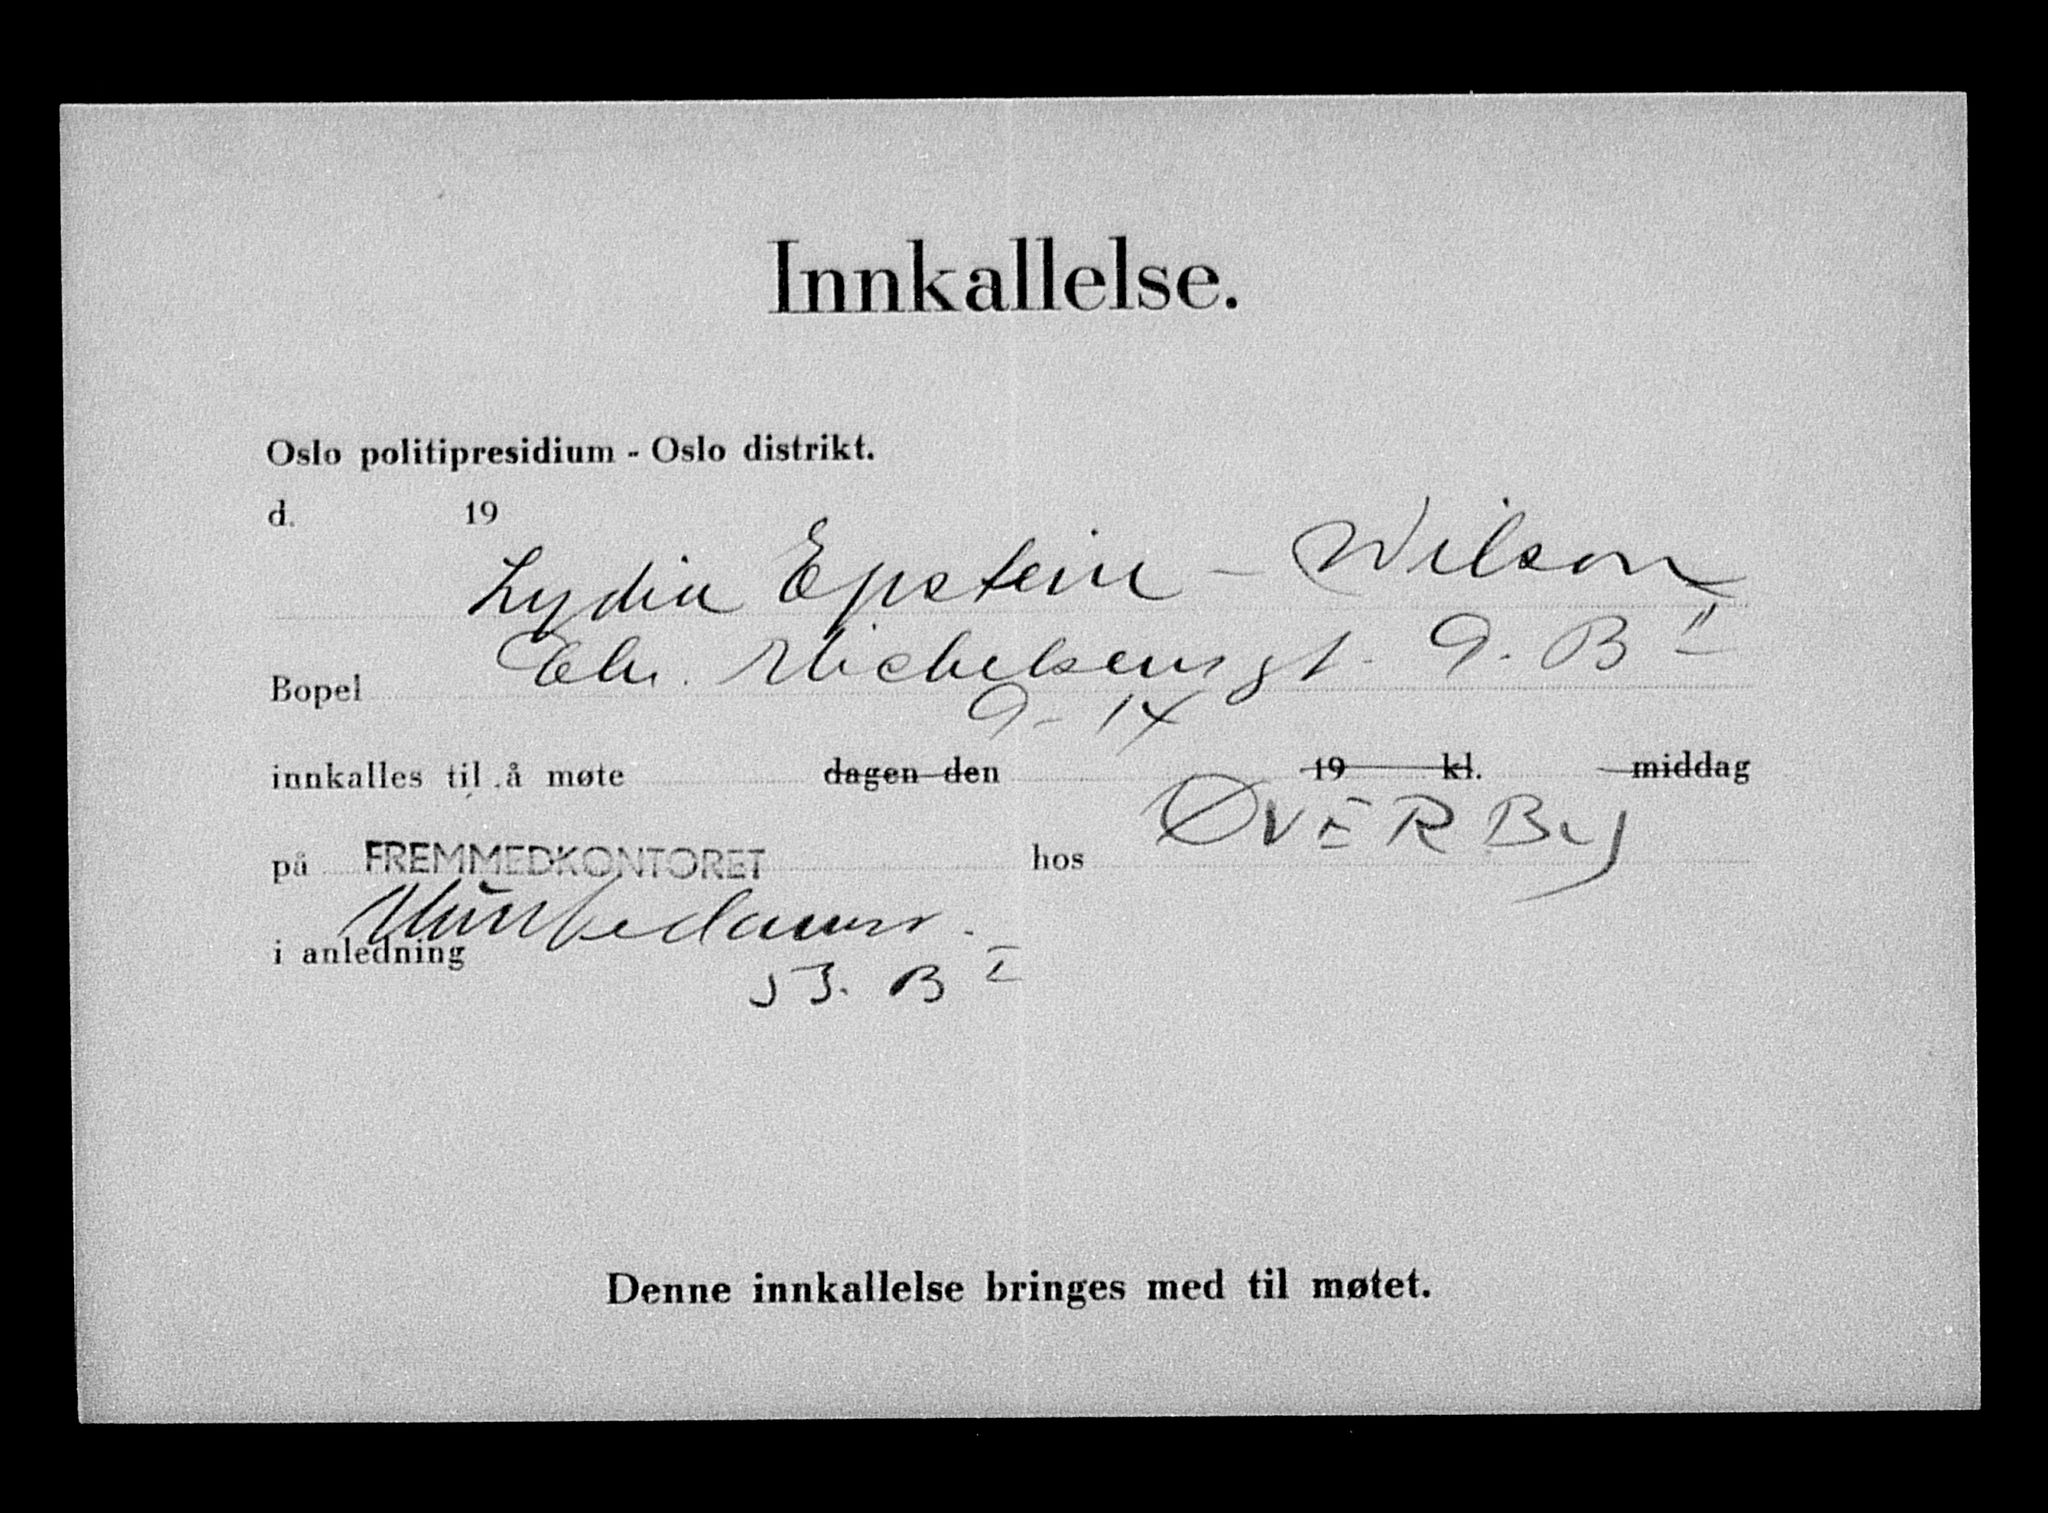 Innkallelse.
Oslo politipresidium - Oslo distrikt.
d. 19
Lydia Epstein - Wilson
Bopel Chr. Michelsensgt. 9. B II
9 - 14
innkalles til å møte dagen den 19 kl. middag
på FREMMEDKONTORET hos ØVERBy
Munkedamsv.
i anledning
53. B I
Denne innkallelse bringes med til møtet.